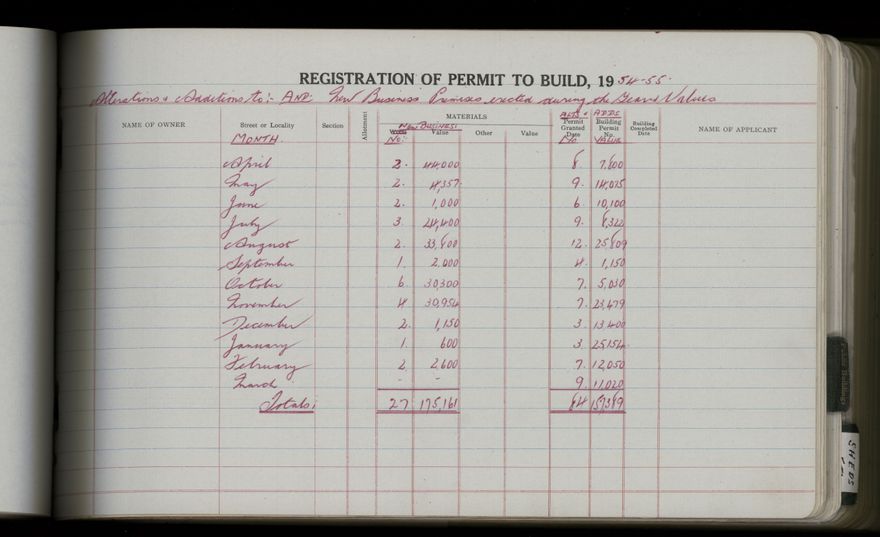 REGISTRATION OF PERMIT TO BUILD, 1954-55.
Alterations & Additions to:- AND New Business Premises erected during the Year & Values
NAME OF OWNER Street or Locality Section Allotment MATERIALS ALTS & ADDS Building Completed Date NAME OF APPLICANT
MONTH. New Business: Value Other Value Permit Granted Date Building Permit No.
No:- No. VALUE
April 2. 44,000 8. 7,800
May 2. 4,357. 9. 14,075
June 2. 1,000 6. 10,100
July 3. 24,400 9. 8,322
August 2. 33,800 12. 25,809
September 1. 2,000 4. 1,150
October 6. 30,300 7. 5,030
November 4 30,954 7. 23,479
December 2. 1,150 3. 13,400
January 1. 600 3. 25,154
February 2. 2,600 7. 12,050
March - - 9. 11,020
Totals: 27 175,161 84 157,389
Public Buildings
SHEDS